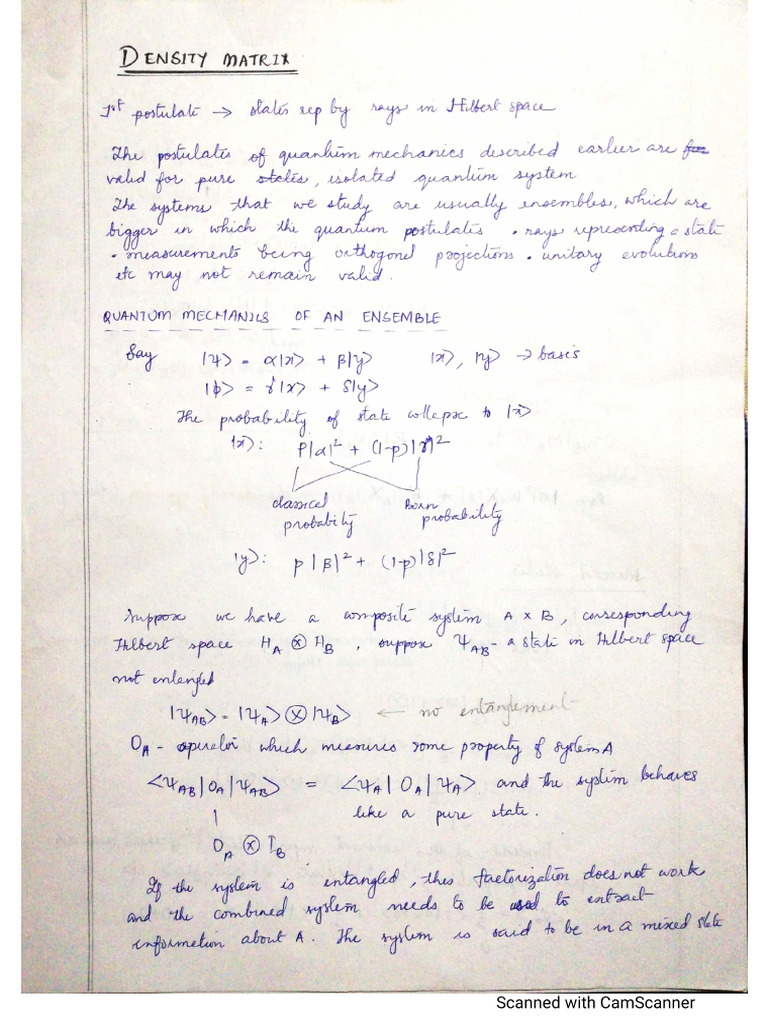 DENSITY MATRIX
1st postulate → states rep by rays in Hilbert space
The postulates of quantum mechanics described earlier are
valid for pure states, isolated quantum system
The systems that we study are usually ensembles, which are
bigger in which the quantum postulates • rays representing a state
• measurements being orthogonal projections • unitary evolutions
etc may not remain valid.
QUANTUM MECHANICS OF AN ENSEMBLE
Say |ψ> = α|x> + β|y> |x>, |y> → basis
|ϕ> = γ|x> + δ|y>
The probability of state collapse to |x>
|x>: p|α|² + (1-p)|γ|²
classical Born
probability probability
|y>: p|β|² + (1-p)|δ|²
Suppose we have a composite system A x B, corresponding
Hilbert space H_A ⊗ H_B, suppose ψ_AB - a state in Hilbert space
not entangled
|ψ_AB> = |ψ_A> ⊗ |ψ_B> ← no entanglement
O_A - operator which measures some property of system A
<ψ_AB|O_A|ψ_AB> = <ψ_A|O_A|ψ_A> and the system behaves
like a pure state.
O_A ⊗ I_B
If the system is entangled, this factorization does not work
and the combined system needs to be used to extract
information about A. The system is said to be in a mixed state
Scanned with CamScanner